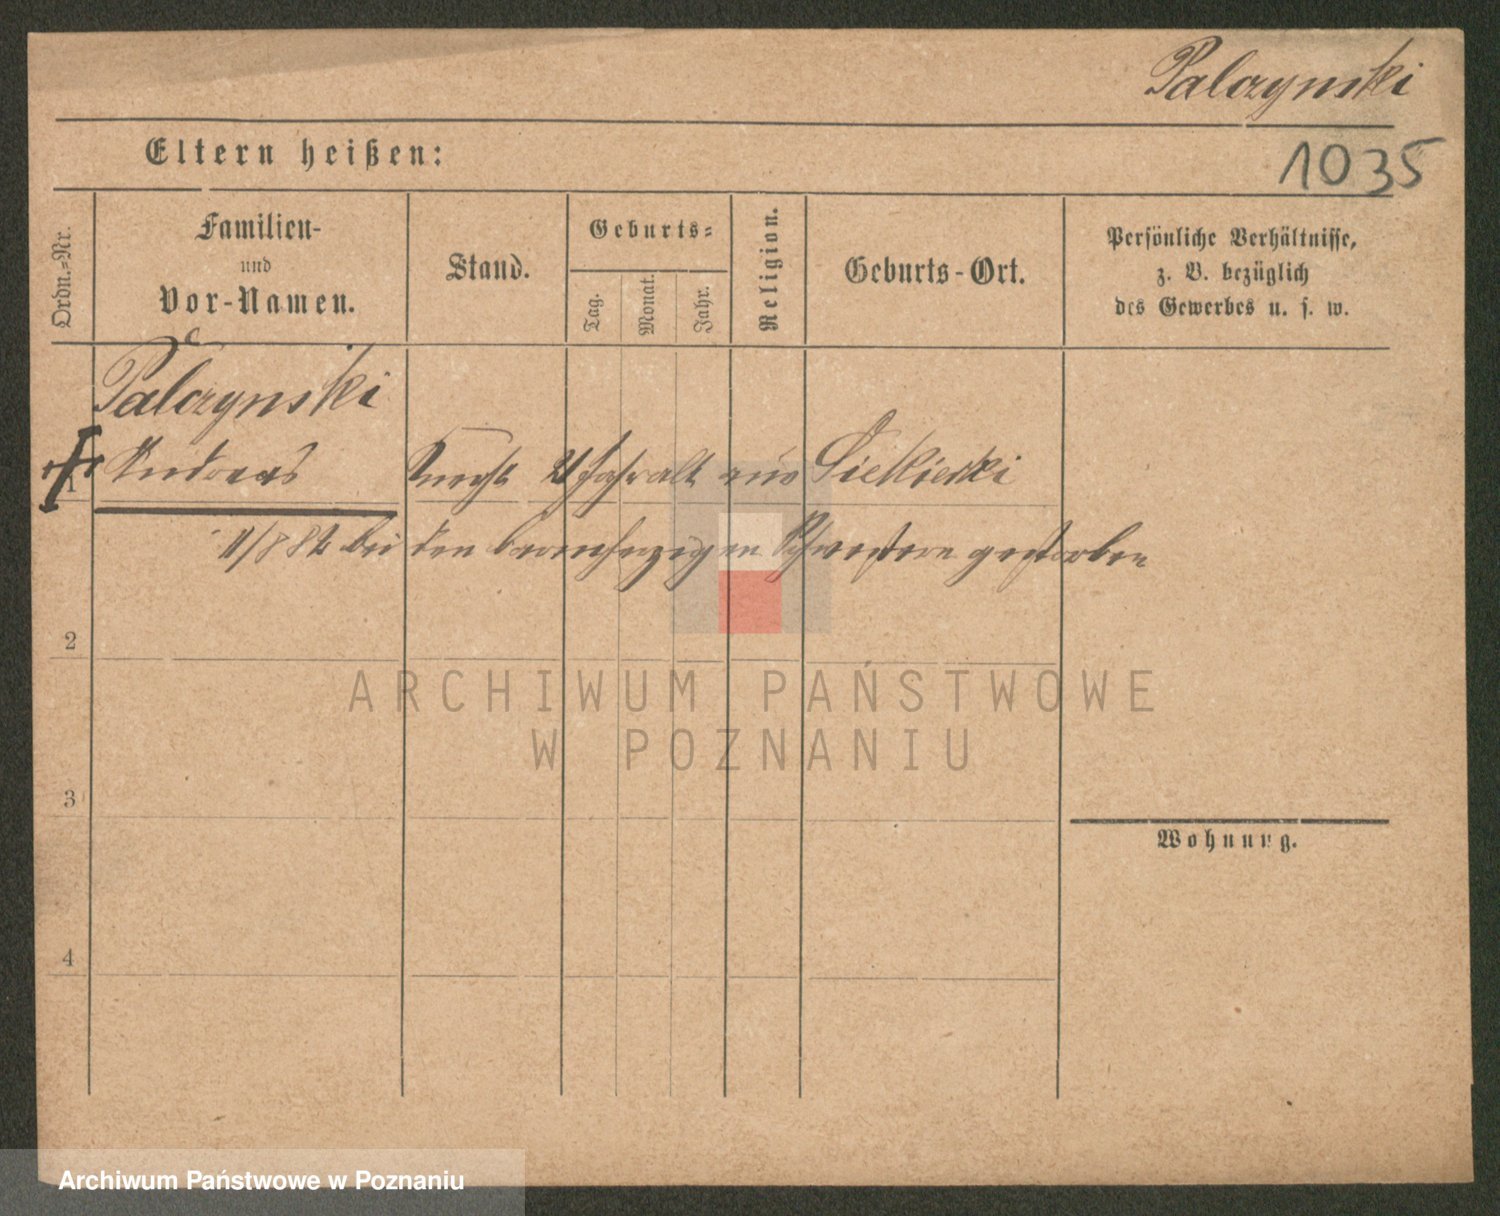 Palczynski
Eltern heißen:
1035
Ordn.=Nr.
Familien-
und
Vor-Namen.
Stand.
Geburts=
Tag.
Monat.
Jahr.
Religion.
Geburts-Ort.
Persönliche Verhältnisse,
z. B. bezüglich
des Gewerbes u. s. w.
Palczynski
1 Andreas Knecht Jahr alt aus Siekierki
/882 bei den barmherzigen Schwestern gestorben
2
ARCHIWUM PAŃSTWOWE
W POZNANIU
3
Wohnung.
4
Archiwum Państwowe w Poznaniu